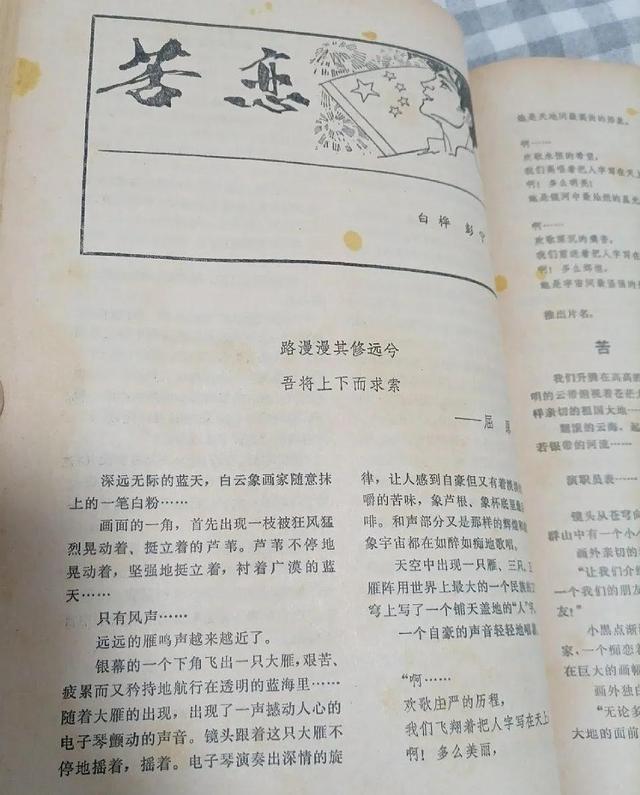 苦恋
白桦 彭宁
路漫漫其修远兮
吾将上下而求索
——屈原
深远无际的蓝天，白云象画家随意抹
上的一笔白粉……
画面的一角，首先出现一枝被狂风猛
烈晃动着、挺立着的芦苇。芦苇不停地
晃动着，坚强地挺立着，衬着广漠的蓝
天……
只有风声……
远远的雁鸣声越来越近了。
银幕的一个下角飞出一只大雁，艰苦、
疲累而又矜持地航行在透明的蓝海里……
随着大雁的出现，出现了一声撼动人心的
电子琴颤动的声音。镜头跟着这只大雁不
停地摇着，摇着。电子琴演奏出深情的旋
律，让人感到自豪但又有着
嚼的苦味，象芦根、象杯底里
啡。和声部分又是那样的辉煌
象宇宙都在如醉如痴地歌唱。
天空中出现一只雁、三只、
雁阵用世界上最大的一个民族的
穹上写了一个铺天盖地的“人”字，
一个自豪的声音轻轻地唱
“啊……
欢歌庄严的历程，
我们飞翔着把人字写在天上
啊！多么美丽，
她是天地间最高尚的形象。
啊……
欢歌永恒的希望，
我们高唱着把人字写在天上
啊！多么明亮！
她是银河中最灿烂的星光
啊……
欢歌深沉的痛苦，
我们哀述着把人字写在天上
啊！多么辉煌，
她是宇宙间最坚强的
推出片名。
苦
我们升腾在高高的
明的云带俯视着苍茫大
样亲切的祖国大地……
翻滚的云海，起
若银带的河流……
演职员表……
镜头从苍穹向
群山中有一个小小
画外亲切的
“让我们介绍
一个我们的朋友
友！”
小黑点渐渐
家、一个痴恋着
在巨大的画幅
画外独白
“无论多
大地的面前